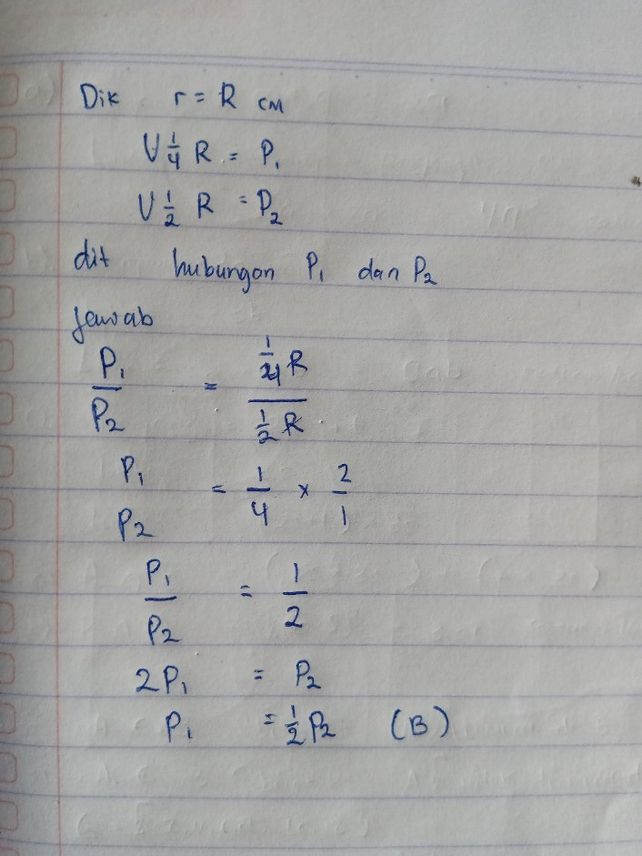 Dik r = R cm
V 1/4 R = P₁
V 1/2 R = P₂
dit hubungan P₁ dan P₂
Jawab
P₁/P₂ = (1/4 R)/(1/2 R)
P₁ P₂ = 1/4 × 2/1
P₁/P₂ = 1/2
2P₁ = P₂
P₁ = 1/2 P₂ (B)